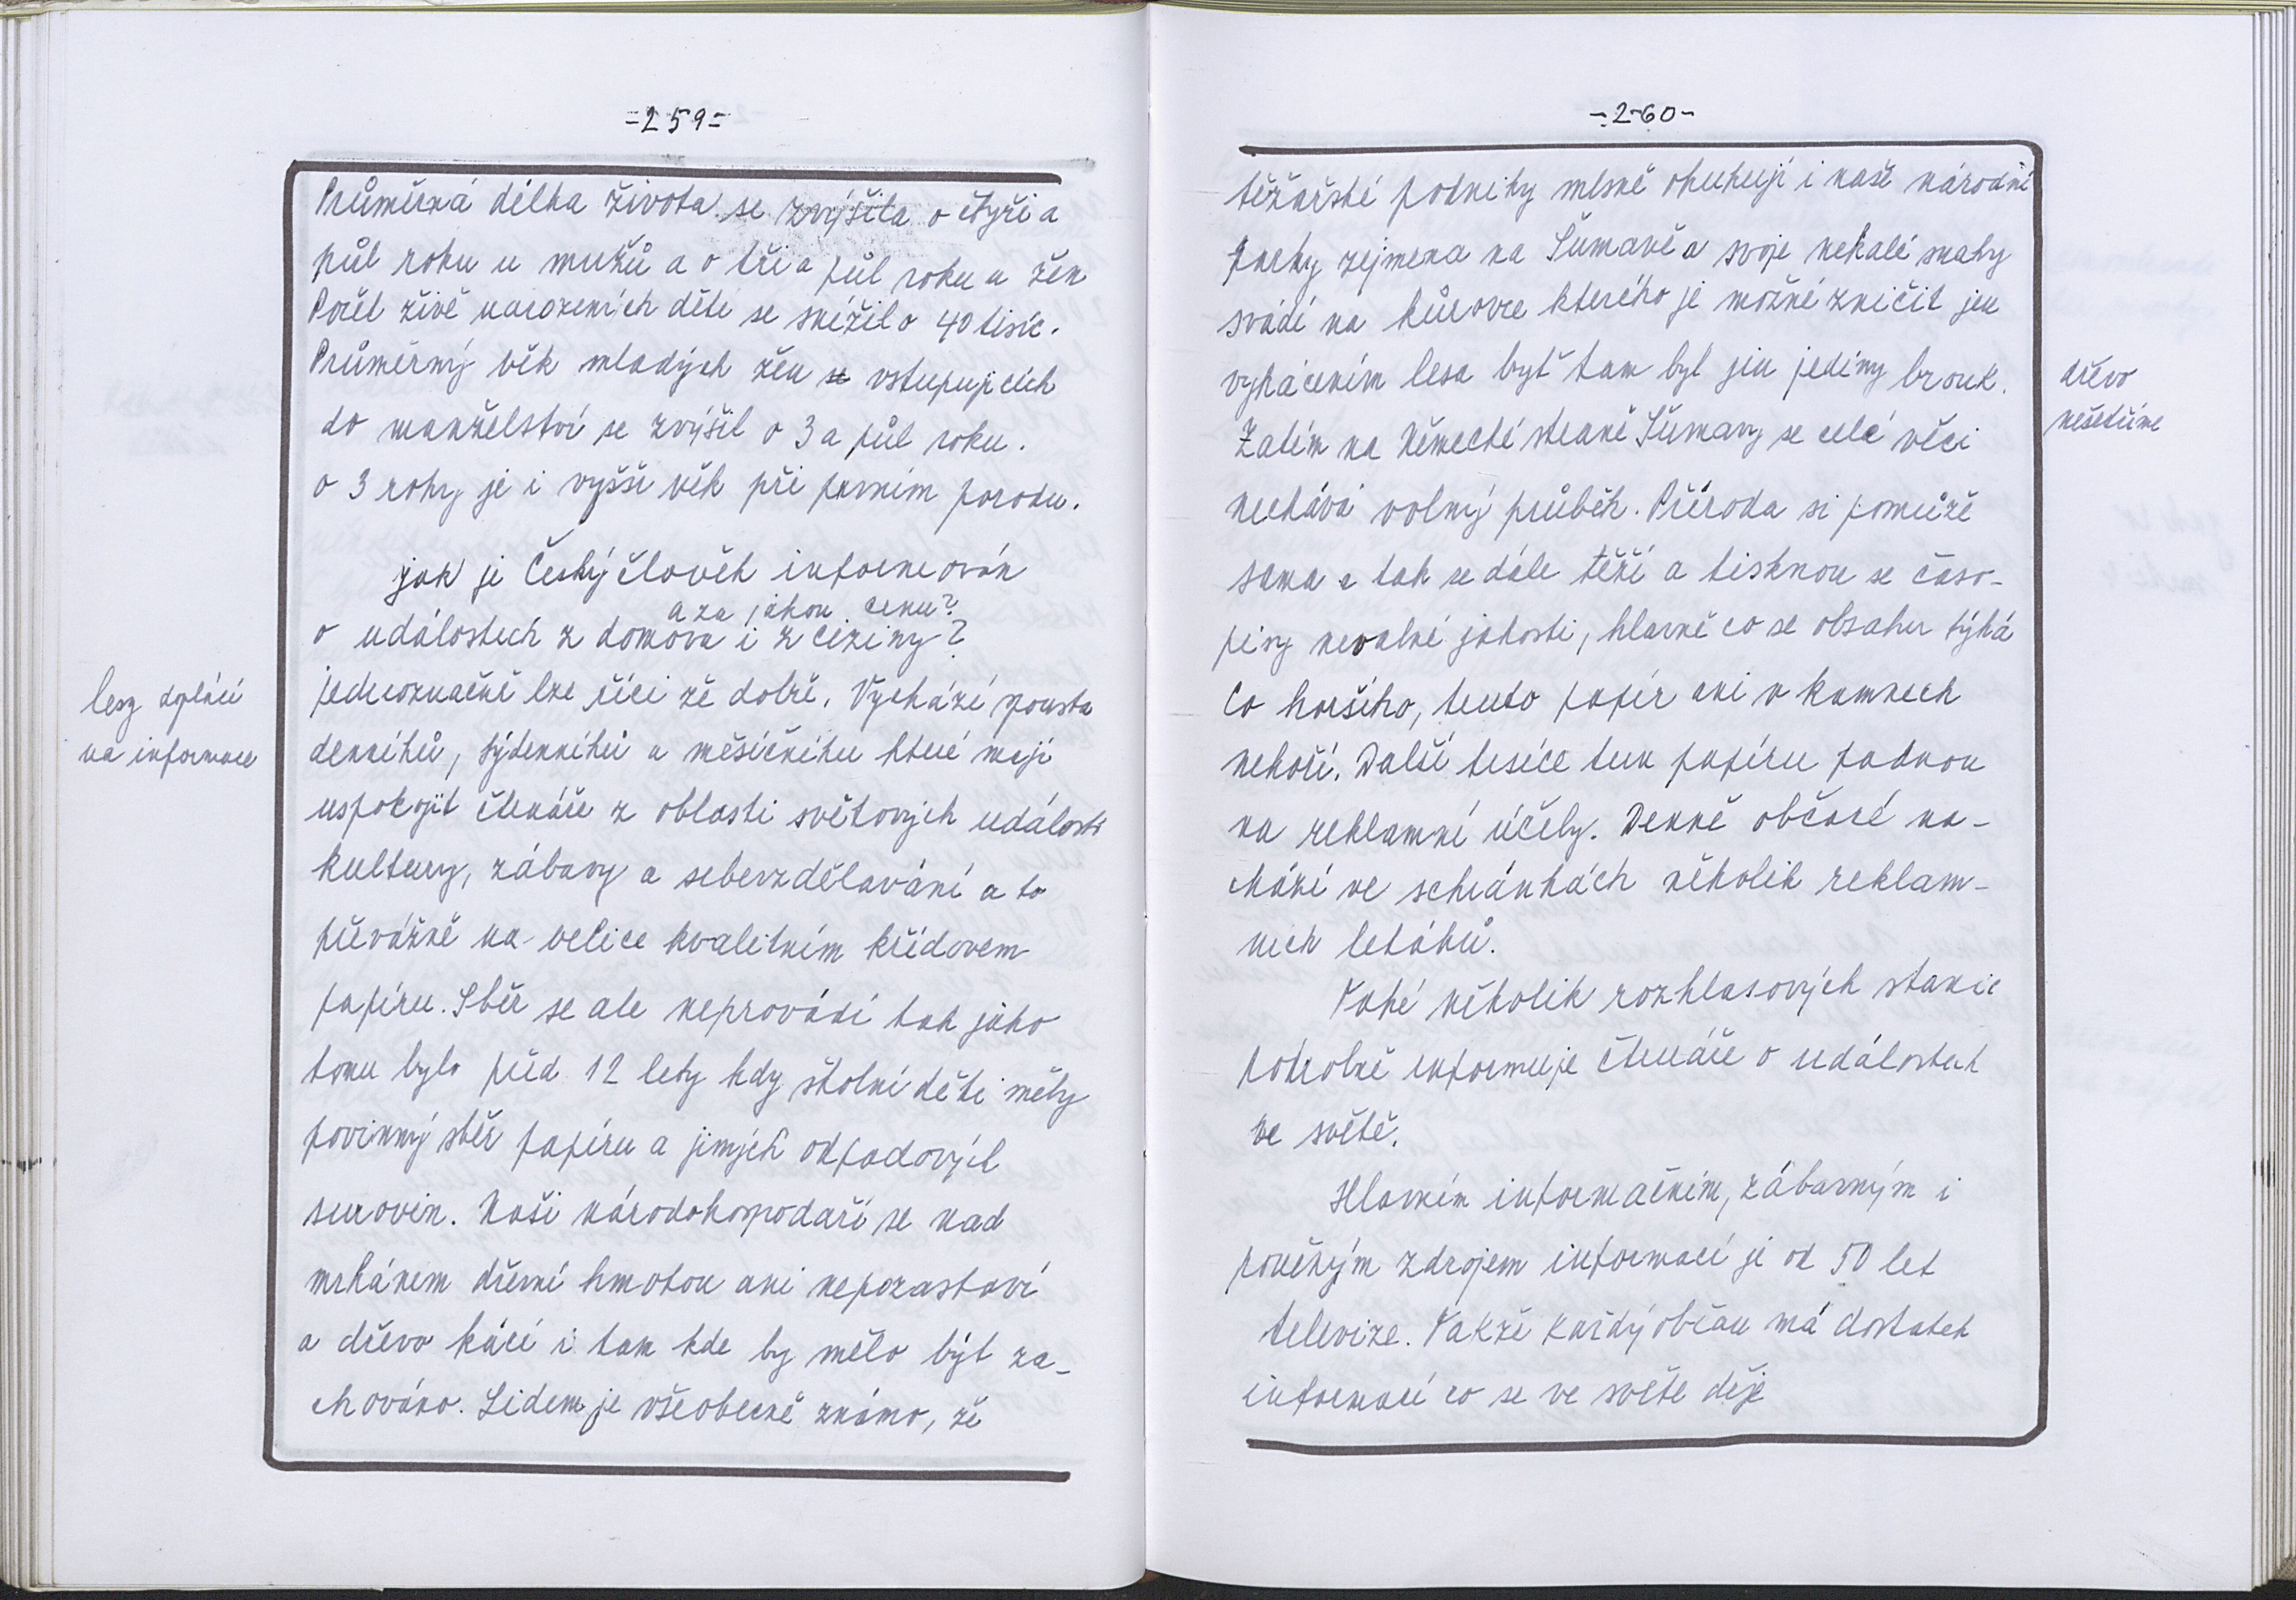 =259=
Průměrná délka života se zvýšila o čtyři a
půl roku u mužů a o tři a půl roku u žen
Počet živě narozených děte se snížil o 40 tisíc.
Průměrný věk mladých žen vstupujících
do manželství se zvýšil o 3 a půl roku.
o 3 roky je i vyšší věk při prvním porodu.
jak je Český člověk informován
a za jakou cenu?
o událostech z domova i z ciziny?
lesy doplácí
na informace
jednoznačně lze říci že dobře. Vychází spousta
denníků, týdenníků a měsíčníku které mají
uspokojit čtenáře z oblasti světových událostí
kultury, zábavy a sebevzdělávání a to
převážně na velice kvalitním křídovem
papíru. Sběr se ale neprovádí tak jako
tomu bylo před 12 lety kdy školní děti měly
povinný sběr papíru a jiných odpadových
surovin. Naši národohospodaři se nad
mrhánem dřevní hmotou ani nepozastaví
a dřevo kácí i tam kde by mělo být za-
chováno. Lidem je všeobecně známo, že
-260-
těžařské podniky mlsně okukují i naše národní
parky zejmena na Šumavě a svoje nekalé snahy
svádí na kůrovce kterého je možné zničit jen
vykácením lesa byť tam byl jen jediny brouk.
dřevo
nešetříme
Zatím na Německé straně Šumavy se celé věci
nechává volný průběh. Příroda si pomůže
sama a tak se dále těží a tisknou se časo-
pisy nevalné jakosti, hlavně co se obsahu týká
Co horšího, tento papír ani v kamnech
nehoří. Další tisíce tun papíru padnou
na reklamní účely. Denně občané na-
chází ve schránkách několik reklam-
ních letáků.
Také několik rozhlasových stanic
podrobně informuje čtenáře o událostech
ve světě.
Hlavním informačním, zábavným i
poučným zdrojem informací je od 50 let
televize. Takže každý občan má dostatek
informací co se ve světe děje